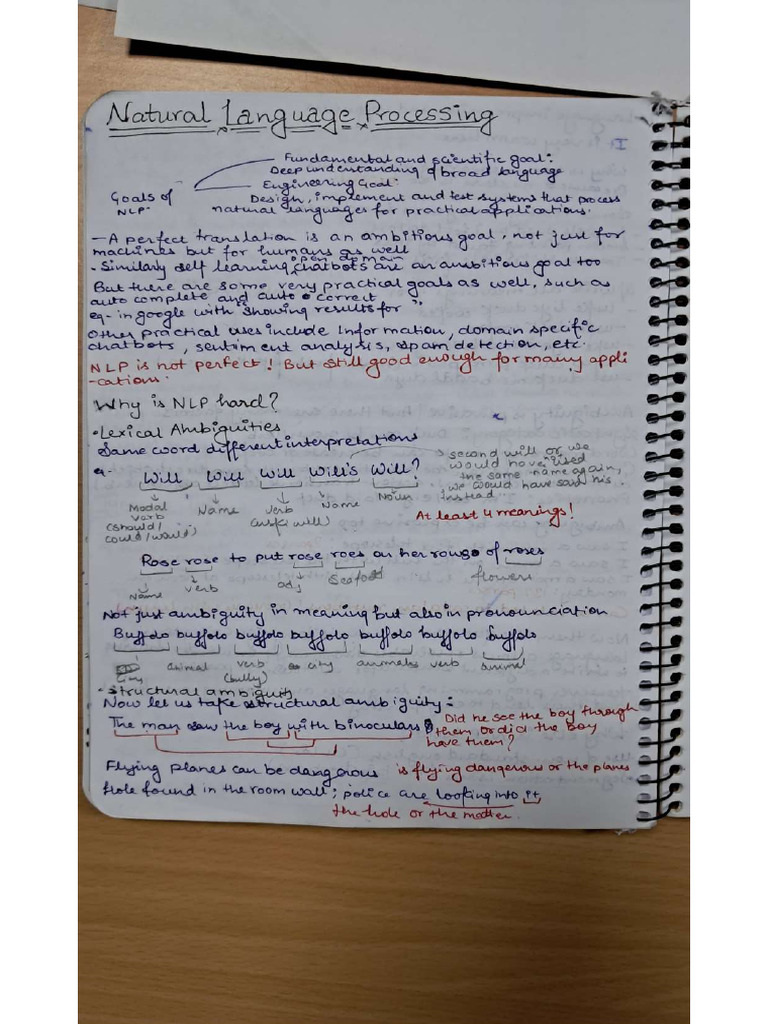 Natural Language Processing
I
Fundamental and scientific goal:
Deep understanding of broad language
Goals of NLP-
Engineering Goal:
Design, implement and test systems that process
natural languages for practical applications.
- A perfect translation is an ambitious goal, not just for
machines but for humans as well
- Similarly self learning open domain chatbots are an ambitious goal too
But there are some very practical goals as well, such as
auto complete and auto correct
eg- in google with "showing results for"
Other practical uses include Information, domain specific
chatbots, sentiment analysis, spam detection, etc.
NLP is not perfect! But still good enough for many appli
-cations.
Why is NLP hard?
• Lexical Ambiguities
Same word different interpretations
e- Will Will Will Will's Will?
second will or we
would have used
the same name again,
we would have said his
instead
Modal verb (should/could/would)
Name
Verb
Name
Noun
At least 4 meanings!
Rose rose to put rose roes on her rows of roses
Name
Verb
adj
Seafood
flowers
Not just ambiguity in meaning but also in pronounciation
Buffalo buffalo buffalo buffalo buffalo buffalo buffalo
City
animal
verb (bully)
city
animals
verb
animal
• Structural ambiguity
Now let us take structural ambiguity:
The man saw the boy with binoculars
Did he see the boy through
them, or did the boy
have them?
Flying planes can be dangerous
is flying dangerous or the planes
Hole found in the room wall; police are looking into it
the hole or the matter.